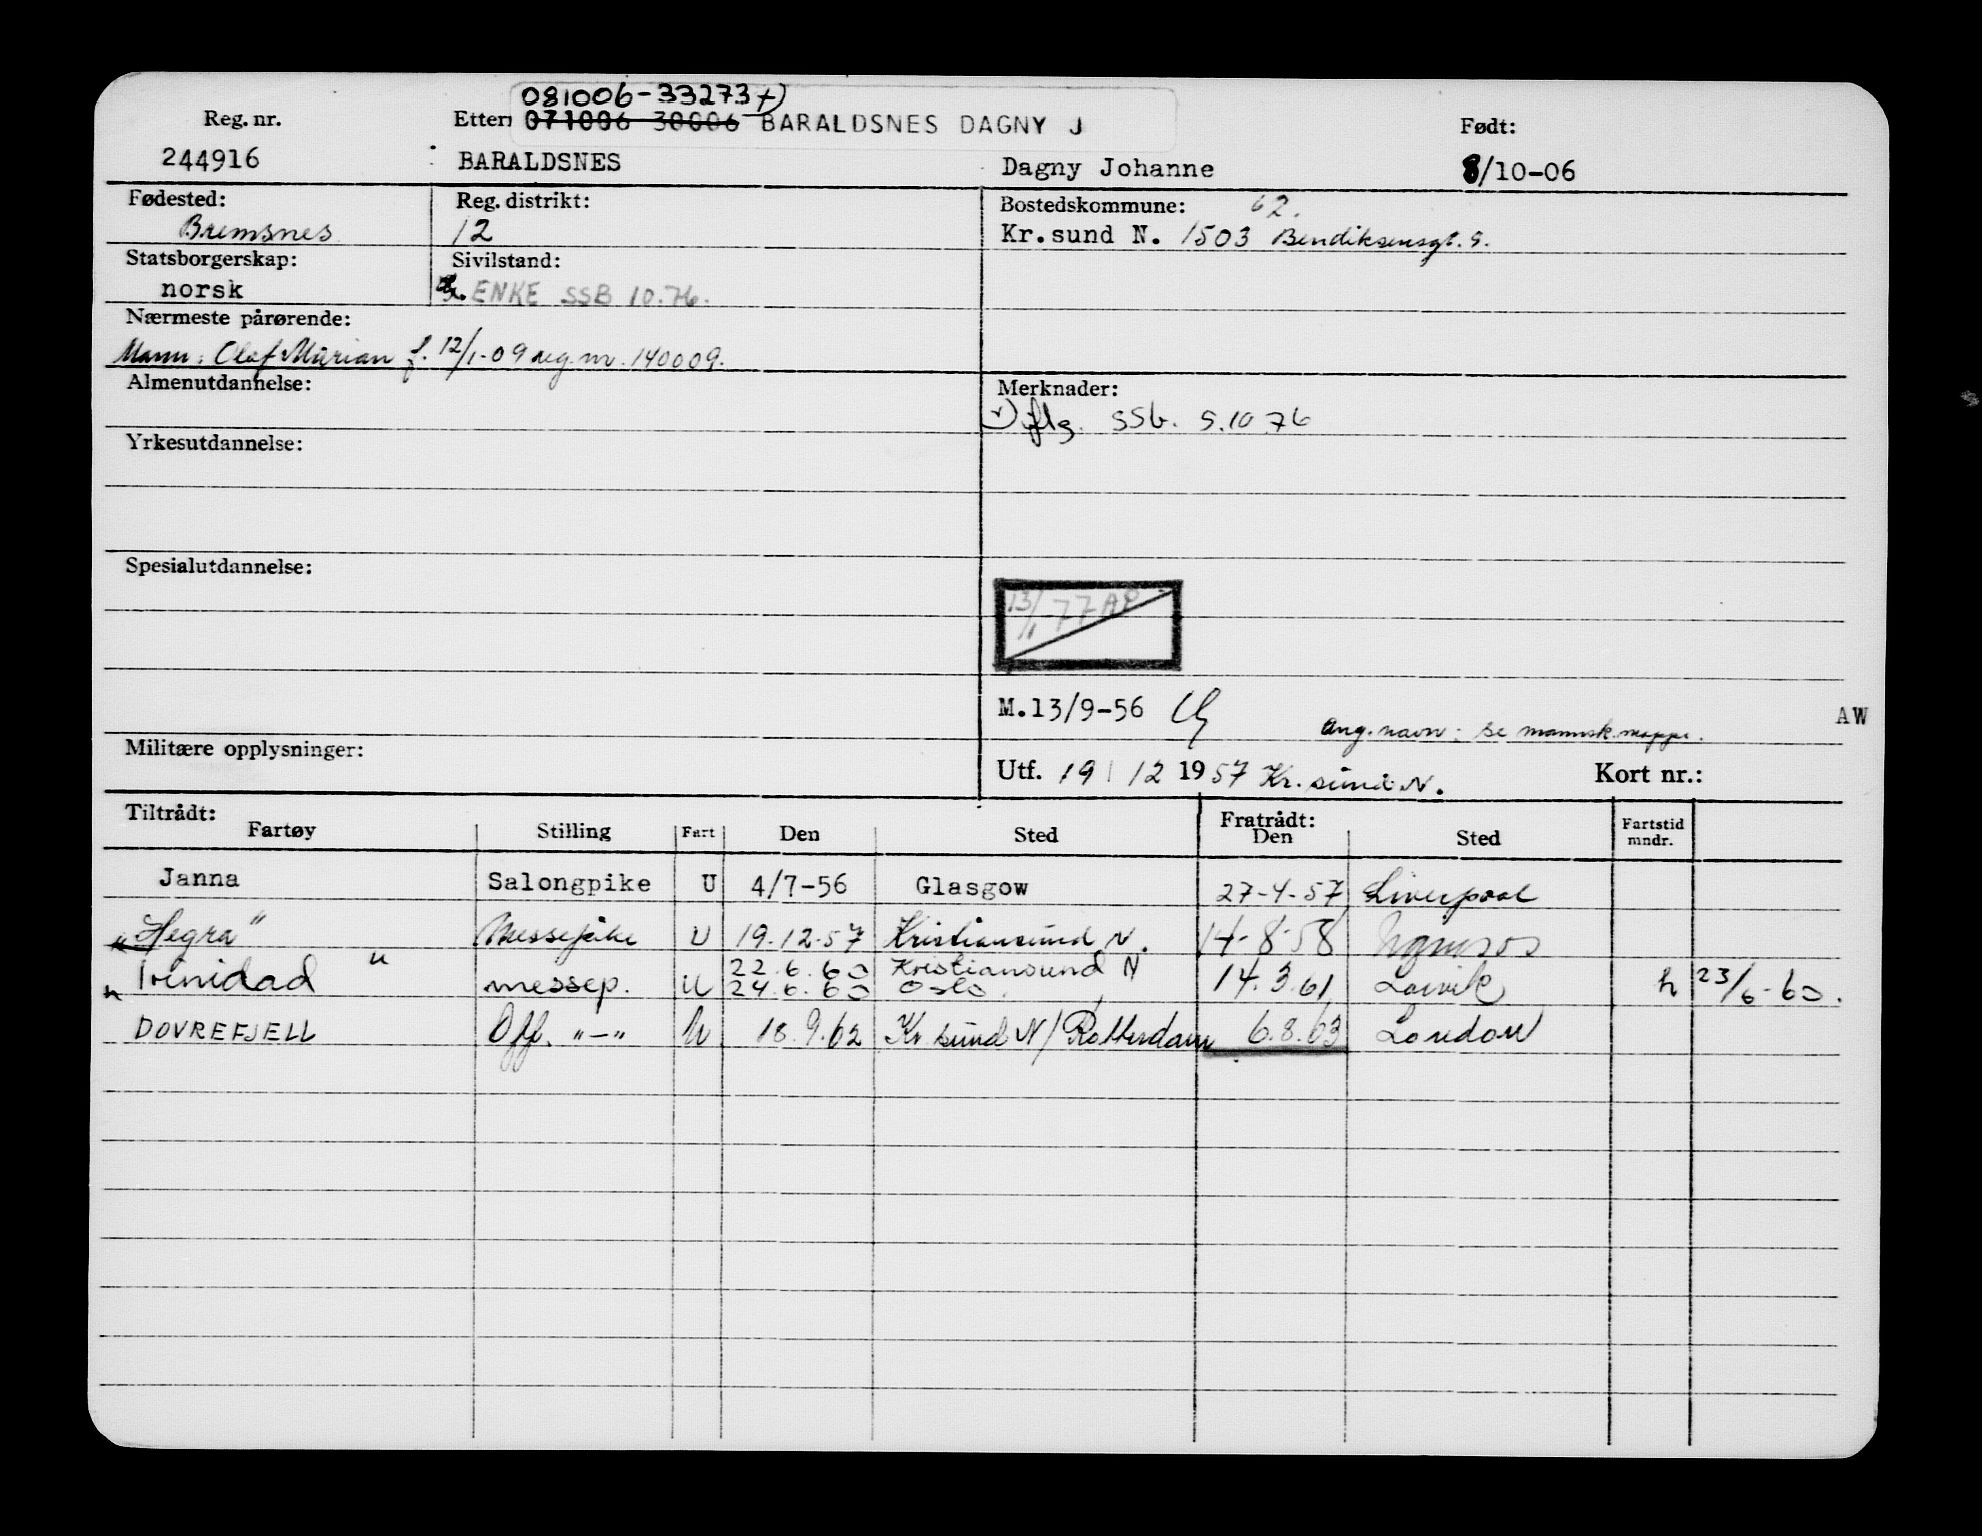 081006-33273+)
Reg. nr. Ettern 071006 30006 BARALDSNES DAGNY J Født:
244916 BARALDSNES Dagny Johanne 8/10-06
Fødested: Reg. distrikt: Bostedskommune: 62.
Bremsnes 12 Kr.sund N. 1503 Bendiksensgt. 9.
Statsborgerskap: Sivilstand:
norsk ENKE SSB 10.76.
Nærmeste pårørende:
Mann: Olaf Marian f. 12/1-09 reg. nr. 140009.
Almenutdannelse: Merknader:
+) iflg. SSb. 5.10 76
Yrkesutdannelse:
Spesialutdannelse:
13/1-77 AP
M.13/9-56
Ang. navn: se mannsk.mappe. AW
Militære opplysninger:
Utf. 19/12 1957 Kr. sund N. Kort nr.:
Tiltrådt: Fratrådt:
Fartøy Stilling Fart Den Sted Den Sted Fartstid mndr.
Janna Salongpike U 4/7-56 Glasgow 27-4-57 Liverpool
"Hegra" Messepike U 19.12.57 Kristiansund N. 14-8-58 Namsos
22.6.60 Kristiansund N
" Trinidad " messep. u 24.6.60 Oslo 14.3.61 Larvik h 23/6-60.
DOVREFJELL Off. "-" u 18.9.62 Kr.sund N/Rotterdam 6.8.63 London